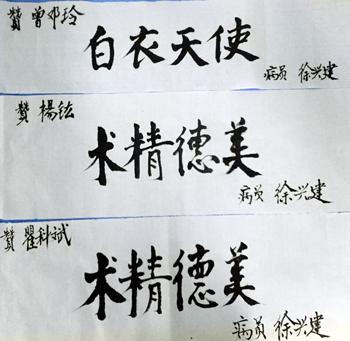 赞 曾邓玲
白衣天使
病员 徐兴建
赞 楊紘
术精德美
病员 徐兴建
赞 瞿科斌
术精德美
病员 徐兴建